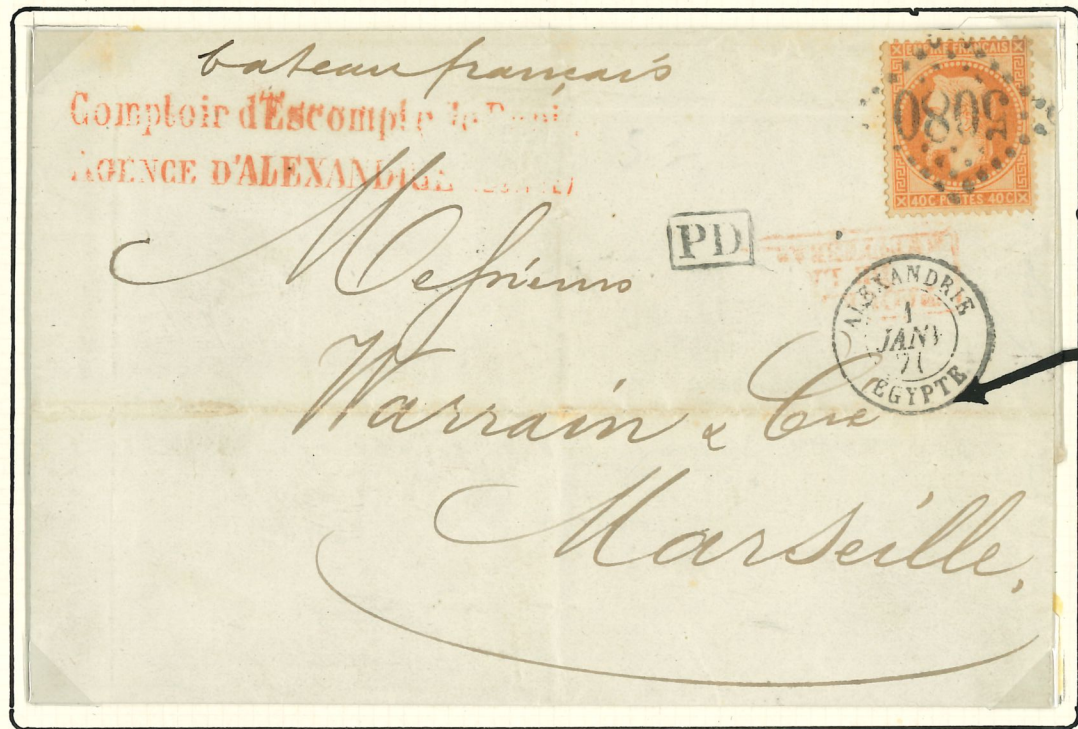 bateau français
Comptoir d'Escompte de
AGENCE D'ALEXANDRIE
EMPIRE FRANÇAIS
5080
40C POSTES 40C
PD
ALEXANDRIE
1
JANV
71
EGYPTE
Messieurs
Warrain & Cie
Marseille.